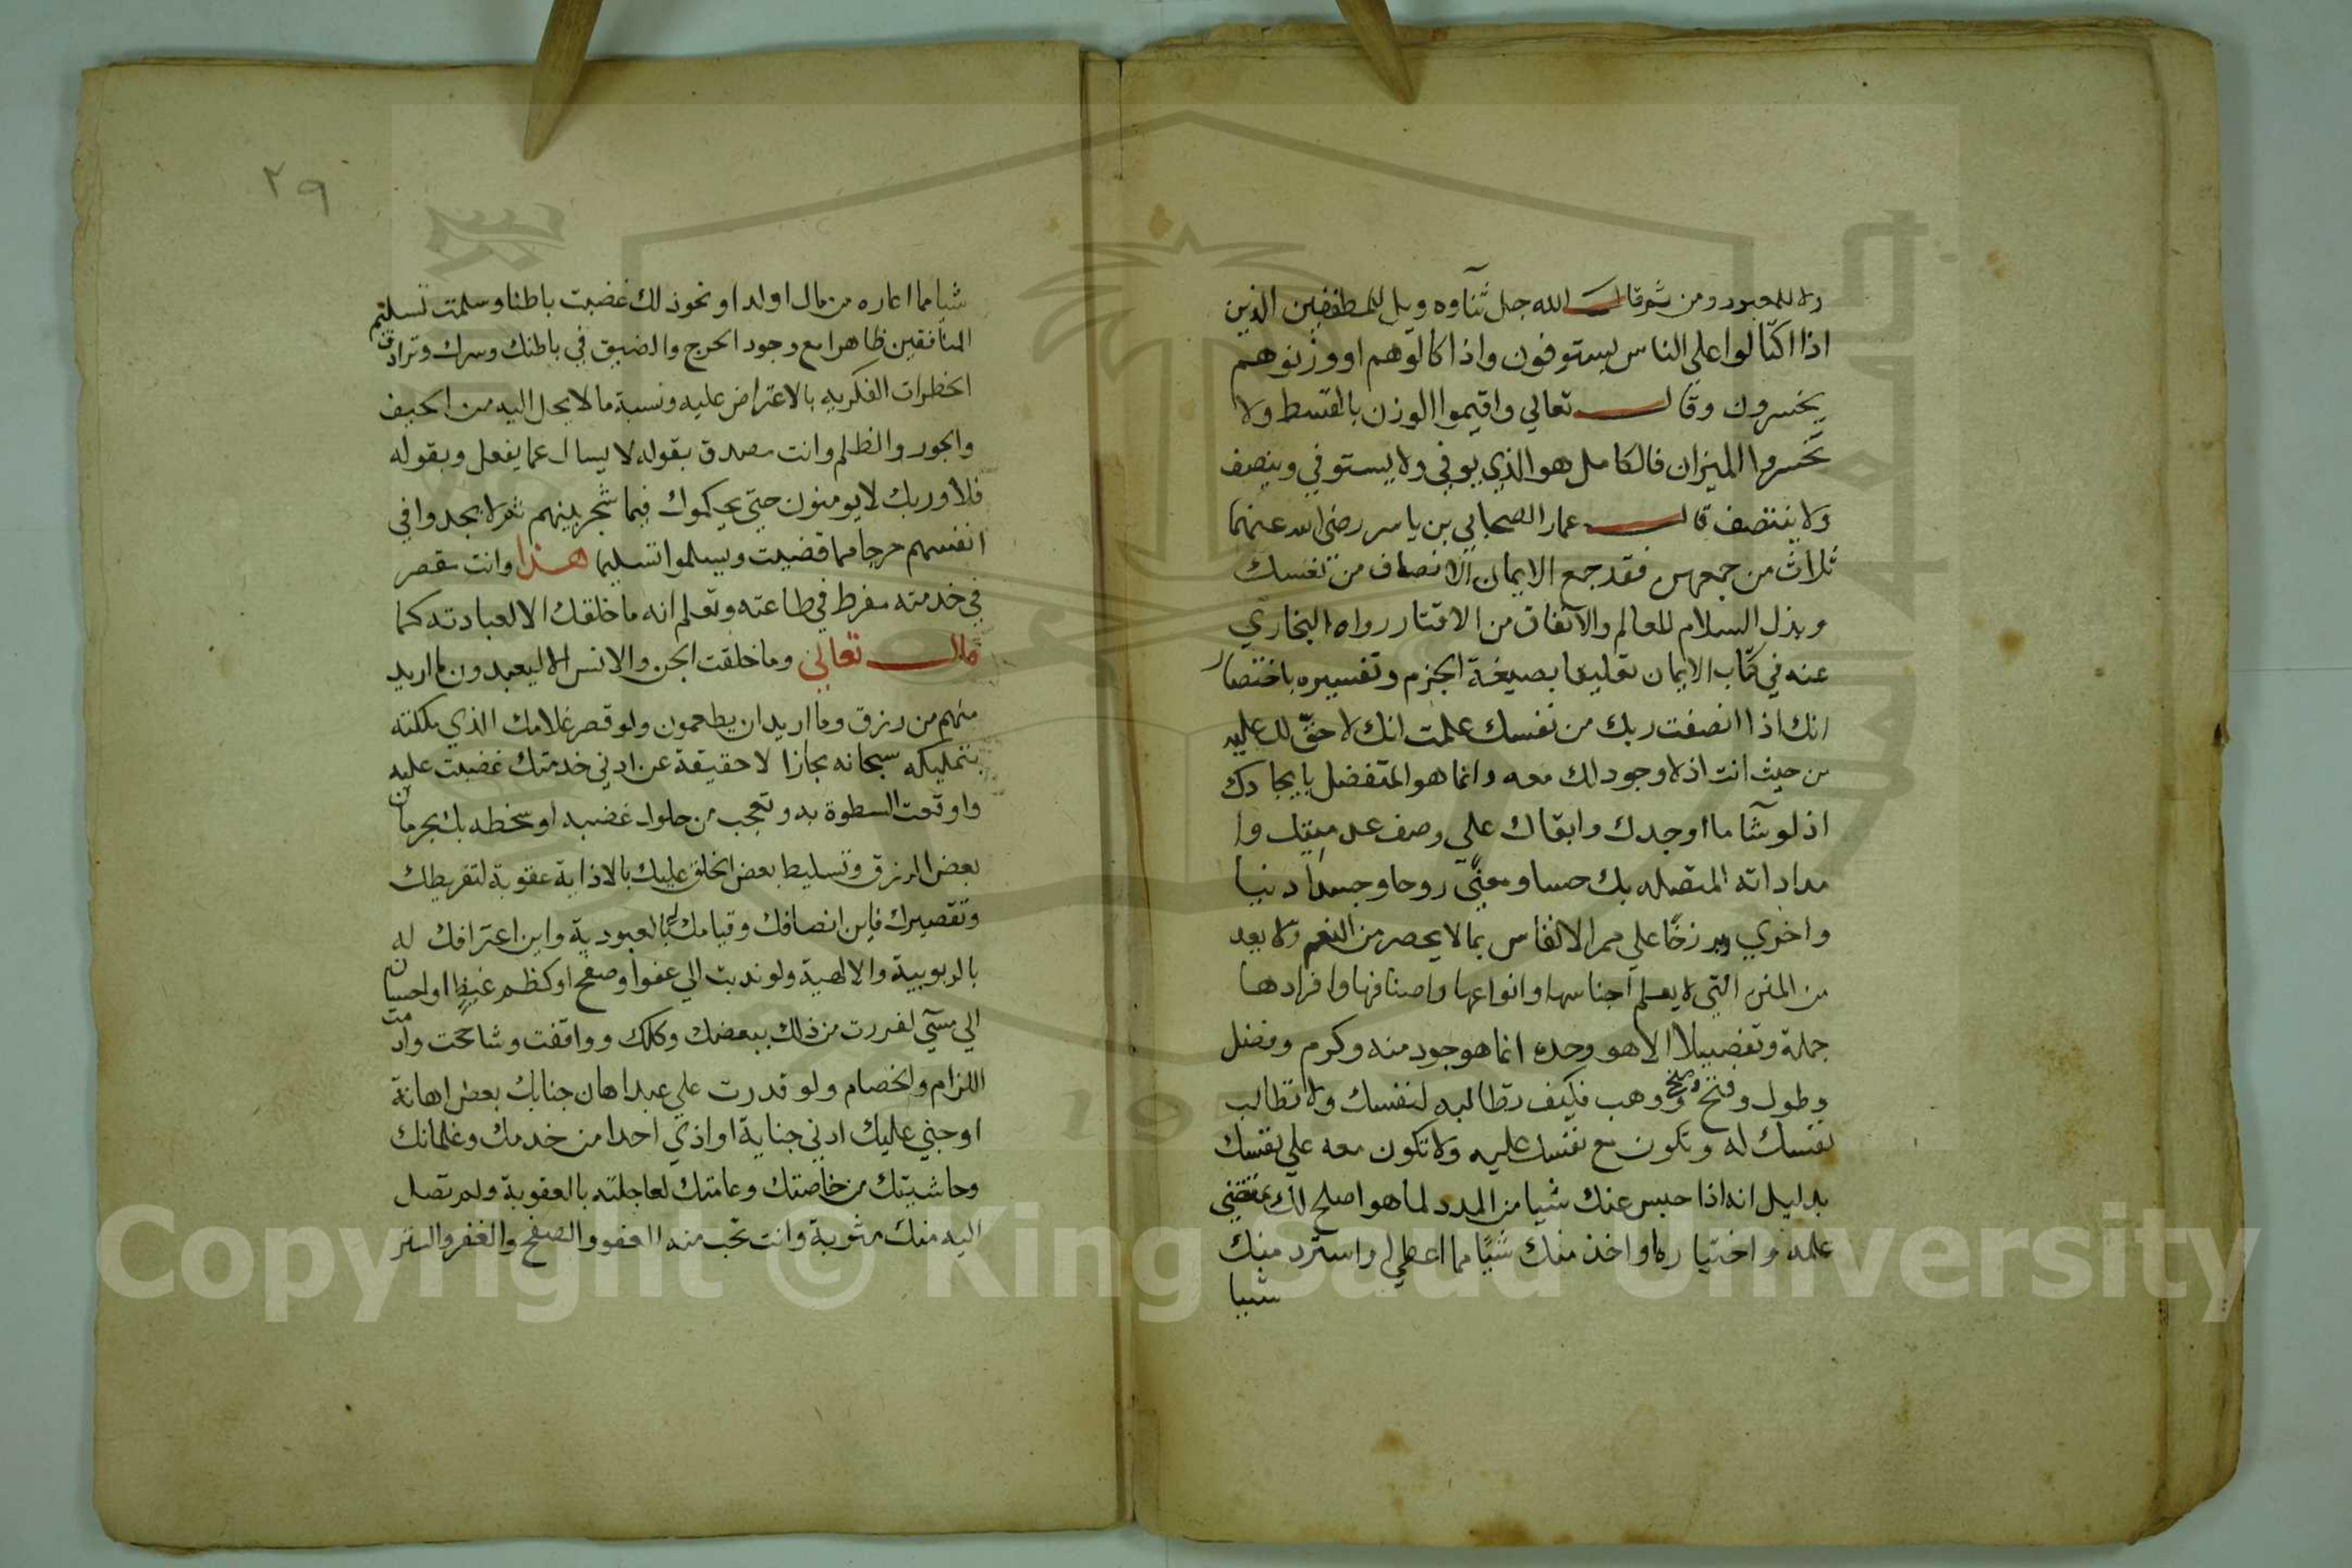 ولا للمعبود ومن ثم قال الله جل ثناوه ويل للمطففين الذين
اذا اكتالوا على الناس يستوفون واذا كالوهم او وزنوهم
يخسرون وقال تعالي واقيموا الوزن بالقسط ولا
تخسروا الميزان فالكامل هو الذي يوفي ولا يستوفي وينصف
ولا ينتصف قال عمار الصحابي بن ياسر رضي الله عنهما
ثلاث من جمعهن فقد جمع الايمان الانصاف من نفسك
وبذل السلام للعالم والانفاق من الاقتار رواه البخاري
عنه في كتاب الايمان تعليقا بصيغة الجزم وتفسيره باختصار
انك اذا انصفت ربك من نفسك علمت انك لا حق لك عليه
من حيث انت اذ لا وجود لك معه وانما هو المتفضل بايجادك
اذ لو شآ ما اوجدك وابقاك علي وصف عدميتك وا
مداداته المتصله بك حسا ومعني روحا وجسدا دنيا
واخري وبرزخا علي ممر الانفاس بما لا يحصر من النعم ولا يعد
من المنن التي لا يعلم اجناسها وانواعها واصنافها وافرادها
جملة وتفصيلا الا هو وحده انما هو جود منه وكرم وفضل
وطول وفتح ومنح ووهب فكيف تطالبه لنفسك ولا تطالب
نفسك له وتكون مع نفسك عليه ولا تكون معه علي نفسك
بدليل انه اذا حبس عنك شيا من المدد لما هو اصلح لك بمقتضي
علمه واختياره او اخذ منك شيا مما اعطي او استرد منك
شيا
٢٩
شيا مما اعاره من مال او ولد او نحو ذلك غضبت باطنا وسلمت تسليم
المنافقين ظاهرا مع وجود الحرج والضيق في باطنك وسرك وترادف
الخطرات الفكريه بالاعتراض عليه ونسبة ما لا يحل اليه من الحيف
والجور والظلم وانت مصدق بقوله لا يسال عما يفعل وبقوله
فلا وربك لا يومنون حتي يحكموك فيما شجر بينهم ثم لا يجدوا في
انفسهم حرجا مما قضيت ويسلموا تسليما هذا وانت مقصر
في خدمته مفرط في طاعته وتعلم انه ما خلقك الا لعبادته كما
قال تعالي وما خلقت الجن والانس الا ليعبدون ما اريد
منهم من رزق وما اريد ان يطعمون ولو قصر غلامك الذي ملكته
بتمليكه سبحانه مجازا لا حقيقة عن ادني خدمتك غضبت عليه
واوقعت السطوة به وتعجب من حلول غضبه او سخطه بك بحرمان
بعض الرزق وتسليط بعض الخلق عليك بالاذاية عقوبة لتفريطك
وتقصيرك فاين انصافك وقيامك له بالعبودية واين اعترافك له
بالربوبية والالهية ولو ندبت الي عفو او صفح او كظم غيظ او احسان
الي مسيئ لفررت من ذلك ببعضك وكلك وواقفت وشاححت وادمت
اللزام والخصام ولو قدرت علي عبد اهان جنابك بعض اهانة
او جني عليك ادني جناية او اذي احدا من خدمك وغلمانك
وحاشيتك من خاصتك وعامتك لعاجلته بالعقوبة ولم تصل
اليه منك مثوبة وانت تحب منه العفو والصفح والغفر والستر
Copyright © King Saud University